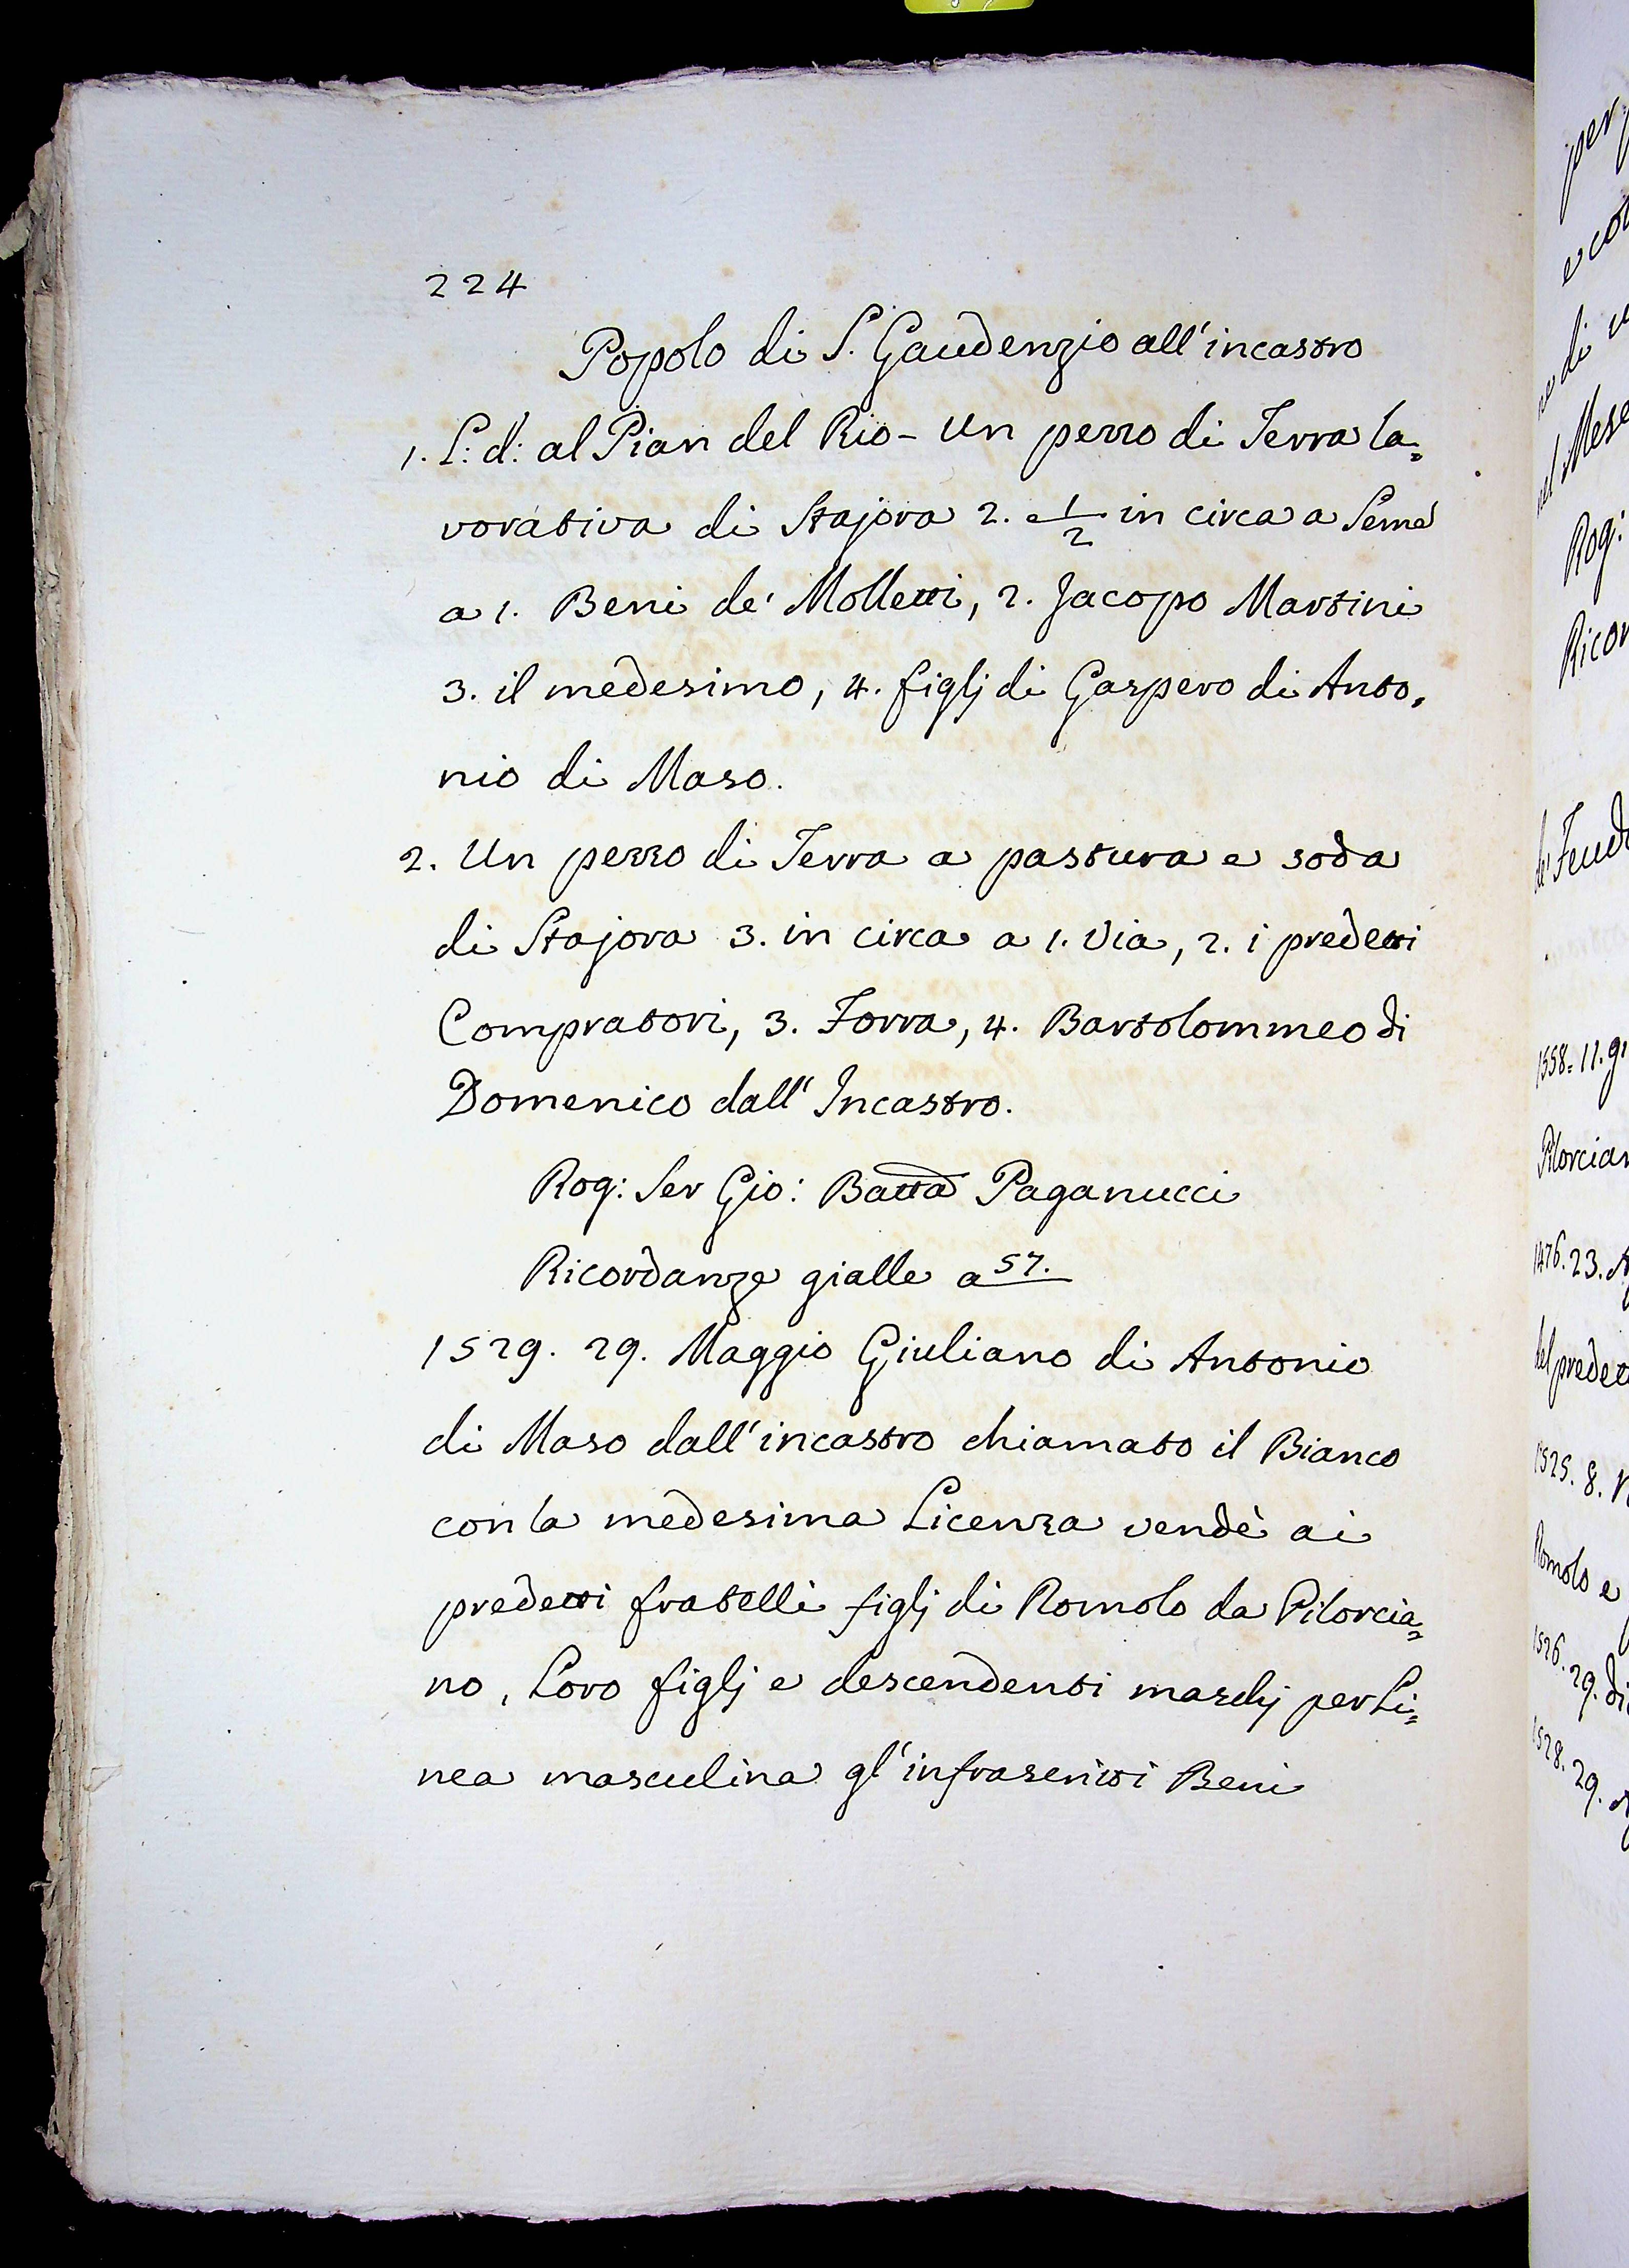 224
Popolo di S. Gaudenzio all'incastro
1. L: d: al Pian del Rio - Un pezzo di Terra la=
vorativa di Stajora 2. e 1/2 in circa a Seme
a 1. Beni de' Molletti, 2. Jacopo Martini
3. il medesimo, 4. figlj di Gaspero di Anto=
nio di Maso.
2. Un pezzo di Terra a pastura e soda
di Stajora 3. in circa a 1. Via, 2. i predetti
Compratori, 3. Forra, 4. Bartolommeo di
Domenico dall'Incastro.
Rog: Ser Gio: Batta Paganucci
Ricordanze gialle a 57.
1529. 29. Maggio Giuliano di Antonio
di Maso dall'incastro chiamato il Bianco
con la medesima Licenza vendè ai
predetti fratelli figlj di Romolo da Pilorcia=
no, Loro figlj e descendenti maschj per Li=
nea masculina gl'infrascritti Beni
per
di
Rog:
1558. 11.
1476. 23.
1525. 8.
Romolo e
1526. 29.
1528. 29.